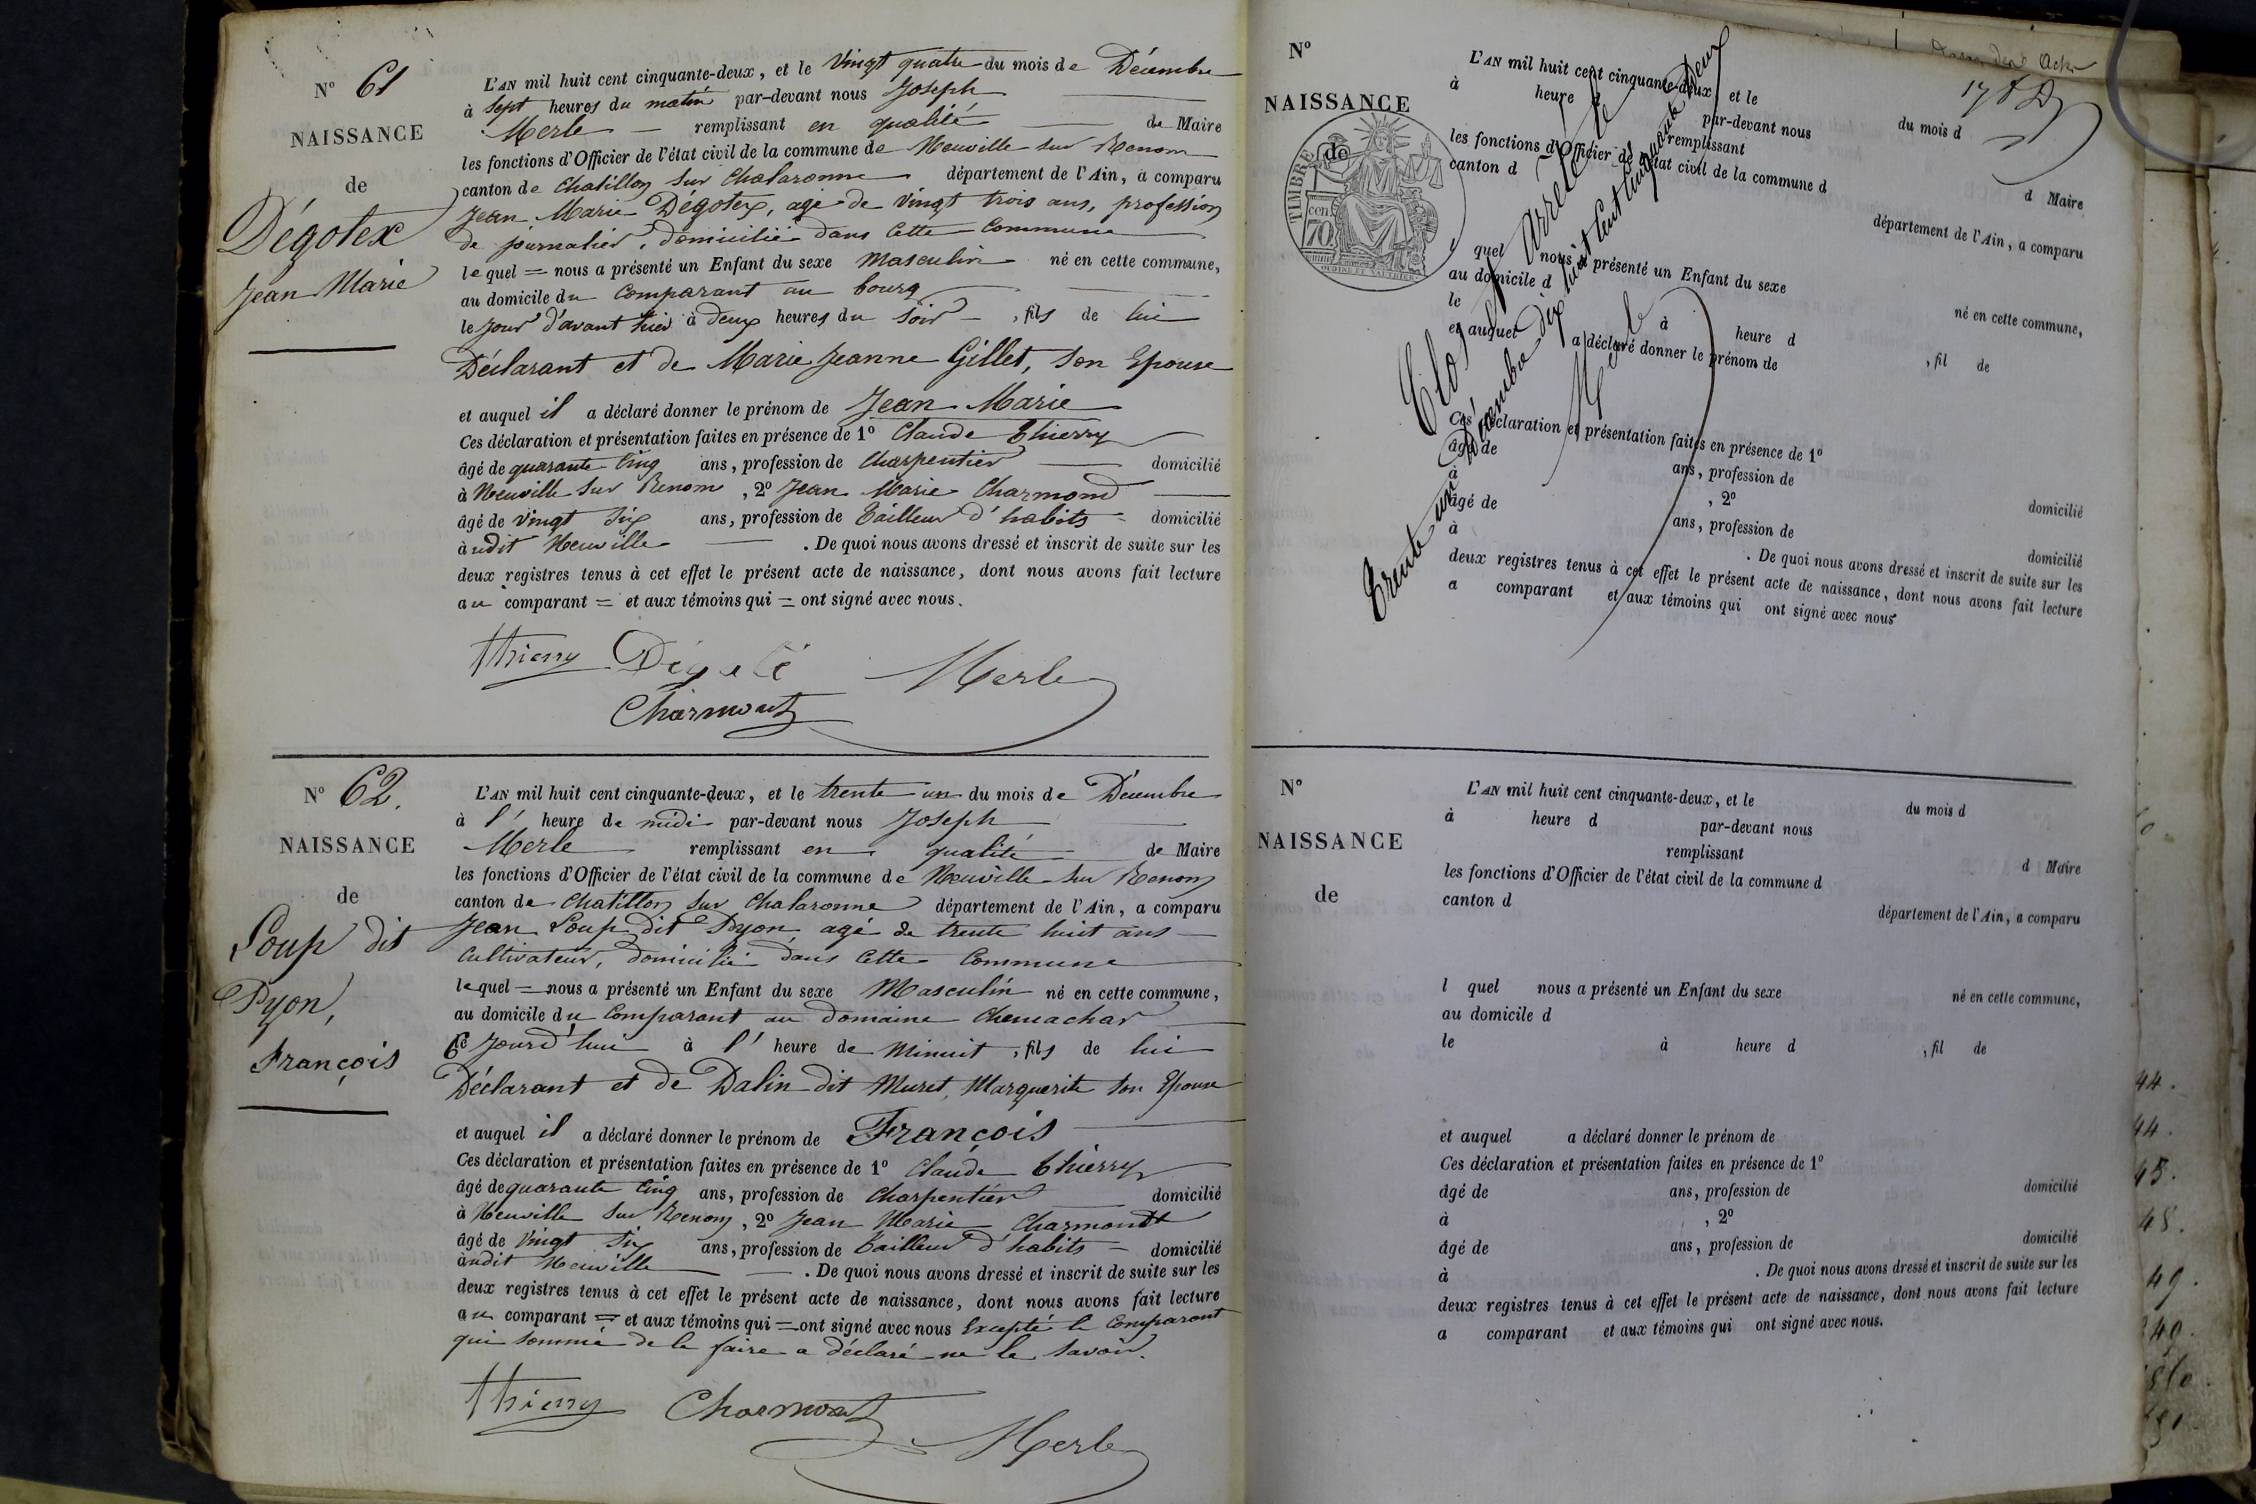 N° 61
NAISSANCE
de
Dégotex
Jean Marie
L'AN mil huit cent cinquante-deux, et le Vingt quatre du mois de Décembre
à Sept heures du matin par-devant nous Joseph
Merle remplissant en qualité de Maire
les fonctions d'Officier de l'état civil de la commune de Neuville sur Renom
canton de Chatillon sur Chalaronne département de l'Ain, a comparu
Jean Marie Dégotex, agé de Vingt trois ans, profession
de journalier, domicilié dans Cette Commune
lequel = nous a présenté un Enfant du sexe Masculin né en cette commune,
au domicile du Comparant au bourg
le jour d'avant hier à deux heures du Soir, fils de lui
Déclarant et de Marie Jeanne Gillet, Son Epouse
et auquel il a déclaré donner le prénom de Jean Marie
Ces déclaration et présentation faites en présence de 1° Claude Thierry
âgé de quarante Cinq ans, profession de Charpentier domicilié
à Neuville Sur Renom, 2° Jean Marie Charmond
âgé de vingt Six ans, profession de Tailleur d'habits = domicilié
àudit Neuville. De quoi nous avons dressé et inscrit de suite sur les
deux registres tenus à cet effet le présent acte de naissance, dont nous avons fait lecture
au comparant = et aux témoins qui = ont signé avec nous.
Thierry Merle
Charmont
N° 62.
NAISSANCE
de
Loup dit
Pyon,
François
L'AN mil huit cent cinquante-deux, et le trente un du mois de Décembre
à l' heure de midi par-devant nous Joseph
Merle remplissant en qualité de Maire
les fonctions d'Officier de l'état civil de la commune de Neuville Sur Renom
canton de Chatillon Sur Chalaronne département de l'Ain, a comparu
Jean Loup dit Pyon, agé de trente huit ans
Cultivateur, domicilié dans Cette Commune
lequel = nous a présenté un Enfant du sexe Masculin né en cette commune,
au domicile du Comparant au domaine Chemachar
le Jourd'hui à l' heure de Minuit, fils de lui
Déclarant et de Dalin dit Muret, Marguerite Son Epouse
et auquel il a déclaré donner le prénom de François
Ces déclaration et présentation faites en présence de 1° Claude Thierry
âgé de quarante Cinq ans, profession de Charpentier domicilié
à Neuville Sur Renom, 2° Jean Marie Charmondt
âgé de Vingt Six ans, profession de Tailleur d'habits = domicilié
àudit Neuville. De quoi nous avons dressé et inscrit de suite sur les
deux registres tenus à cet effet le présent acte de naissance, dont nous avons fait lecture
au comparant = et aux témoins qui = ont signé avec nous Excepté le Comparant
qui Sommé de le faire a déclaré ne le Savoir.
Thierry Charmont
Merle
N°
NAISSANCE
de
TIMBRE
70 cen.
L'AN mil huit cent cinquante-deux, et le du mois d
à heure d par-devant nous
remplissant d Maire
les fonctions d'Officier de l'état civil de la commune d
canton d département de l'Ain, a comparu
l quel nous a présenté un Enfant du sexe né en cette commune,
au domicile d
le à heure d , fil de
et auquel a déclaré donner le prénom de
Ces déclaration et présentation faites en présence de 1°
âgé de ans, profession de domicilié
à , 2°
âgé de ans, profession de domicilié
à . De quoi nous avons dressé et inscrit de suite sur les
deux registres tenus à cet effet le présent acte de naissance, dont nous avons fait lecture
a comparant et aux témoins qui ont signé avec nous
Clos et Arrêté le
Trente un Décembre dix huit Cent Cinquante Deux
Merle
N°
NAISSANCE
de
L'AN mil huit cent cinquante-deux, et le du mois d
à heure d par-devant nous
remplissant d Maire
les fonctions d'Officier de l'état civil de la commune d
canton d département de l'Ain, a comparu
l quel nous a présenté un Enfant du sexe né en cette commune,
au domicile d
le à heure d , fil de
et auquel a déclaré donner le prénom de
Ces déclaration et présentation faites en présence de 1°
âgé de ans, profession de domicilié
à , 2°
âgé de ans, profession de domicilié
à . De quoi nous avons dressé et inscrit de suite sur les
deux registres tenus à cet effet le présent acte de naissance, dont nous avons fait lecture
a comparant et aux témoins qui ont signé avec nous.
44.
44.
45.
49.